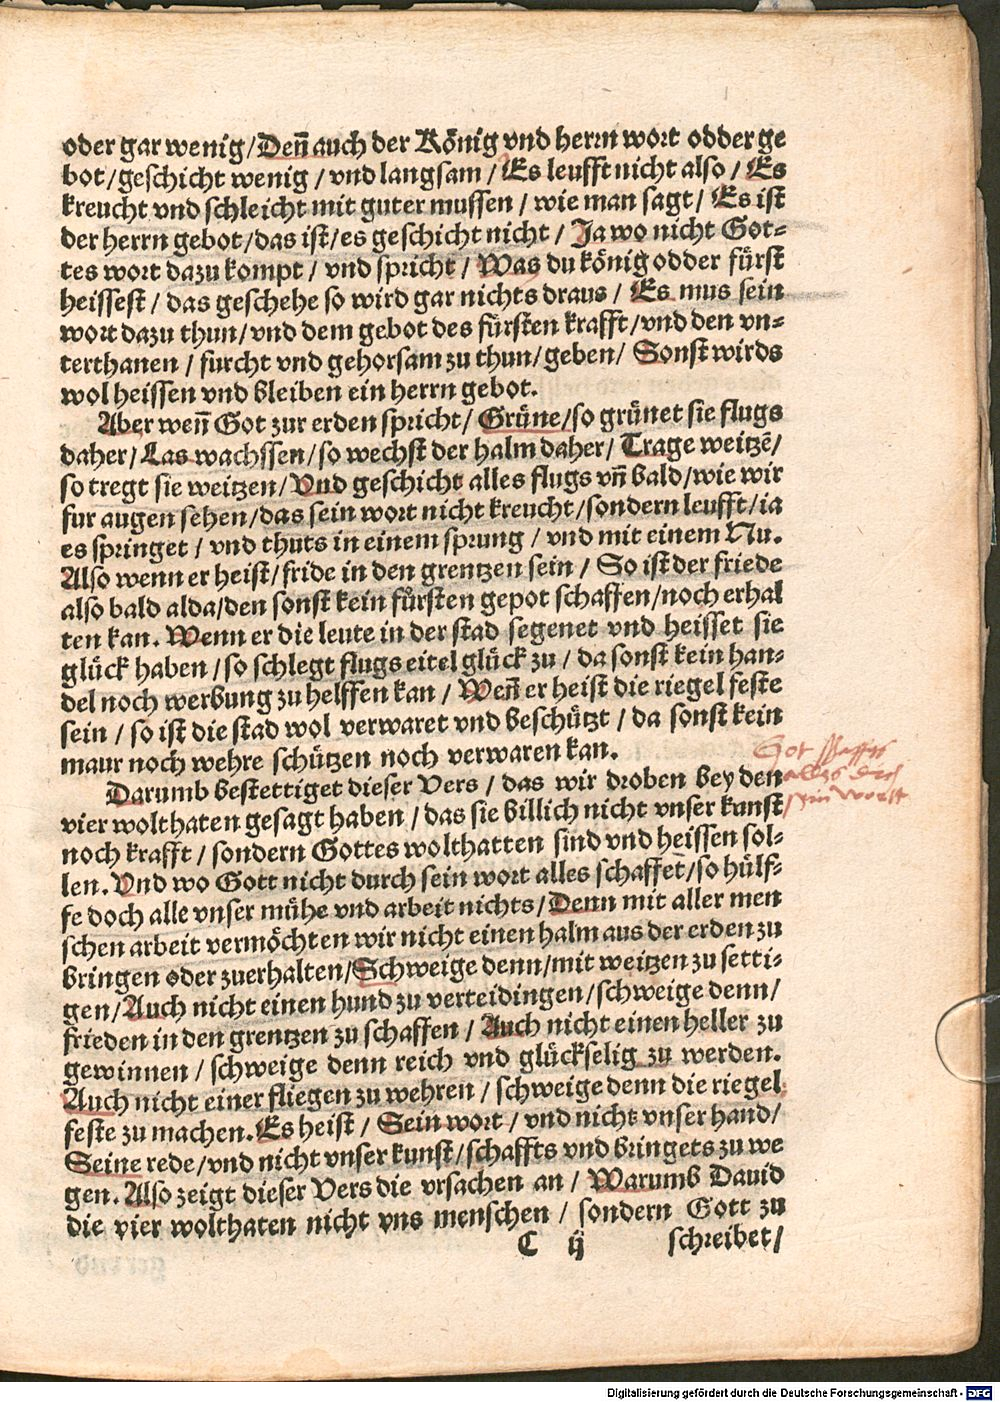 oder gar wenig/Deñ auch der König vnd herrn wort odder ge
bot/geschicht wenig/vnd langsam/Es leufft nicht also/Es
kreucht vnd schleicht mit guter mussen/wie man sagt/Es ist
der herrn gebot/das ist/es geschicht nicht/Ja wo nicht Got=
tes wort dazu kompt/vnd spricht/Was du könig odder fürst
heissest/das geschehe so wird gar nichts draus/Es mus sein
wort dazu thun/vnd dem gebot des fürsten krafft/vnd den vn=
terthanen/furcht vnd gehorsam zu thun/geben/Sonst wirds
wol heissen vnd bleiben ein herrn gebot.
Aber weñ Got zur erden spricht/Grüne/so grünet sie flugs
daher/Las wachssen/so wechst der halm daher/Trage weitzẽ/
so tregt sie weitzen/Vnd geschicht alles flugs vñ bald/wie wir
fur augen sehen/das sein wort nicht kreucht/sondern leufft/ia
es springet/vnd thuts in einem sprung/vnd mit einem Nu.
Also wenn er heist/fride in den grentzen sein/So ist der friede
also bald alda/den sonst kein fürsten gepot schaffen/noch erhal
ten kan. Wenn er die leute in der stad segenet vnd heisset sie
glück haben/so schlegt flugs eitel glück zu/da sonst kein han=
del noch werbung zu helffen kan/Weñ er heist die riegel feste
sein/so ist die stad wol verwaret vnd beschützt/da sonst kein
maur noch wehre schützen noch verwaren kan.
Darumb bestettiget dieser Vers/das wir droben bey den
vier wolthaten gesagt haben/das sie billich nicht vnser kunst
noch krafft/sondern Gottes wolthatten sind vnd heissen sol=
len. Vnd wo Gott nicht durch sein wort alles schaffet/so hülf=
fe doch alle vnser mühe vnd arbeit nichts/Denn mit aller men
schen arbeit vermöchten wir nicht einen halm aus der erden zu
bringen oder zuerhalten/Schweige denn/mit weitzen zu setti=
gen/Auch nicht einen hund zu verteidingen/schweige denn/
frieden in den grentzen zu schaffen/Auch nicht einen heller zu
gewinnen/schweige denn reich vnd glückselig zu werden.
Auch nicht einer fliegen zu wehren/schweige denn die riegel
feste zu machen. Es heist/Sein wort/vnd nicht vnser hand/
Seine rede/vnd nicht vnser kunst/schaffts vnd bringets zu we
gen. Also zeigt dieser Vers die vrsachen an/Warumb Dauid
die vier wolthaten nicht vns menschen/sondern Gott zu
C ij schreibet/
Got schafft
alles durch
sein wortt
Digitalisierung gefördert durch die Deutsche Forschungsgemeinschaft - DFG